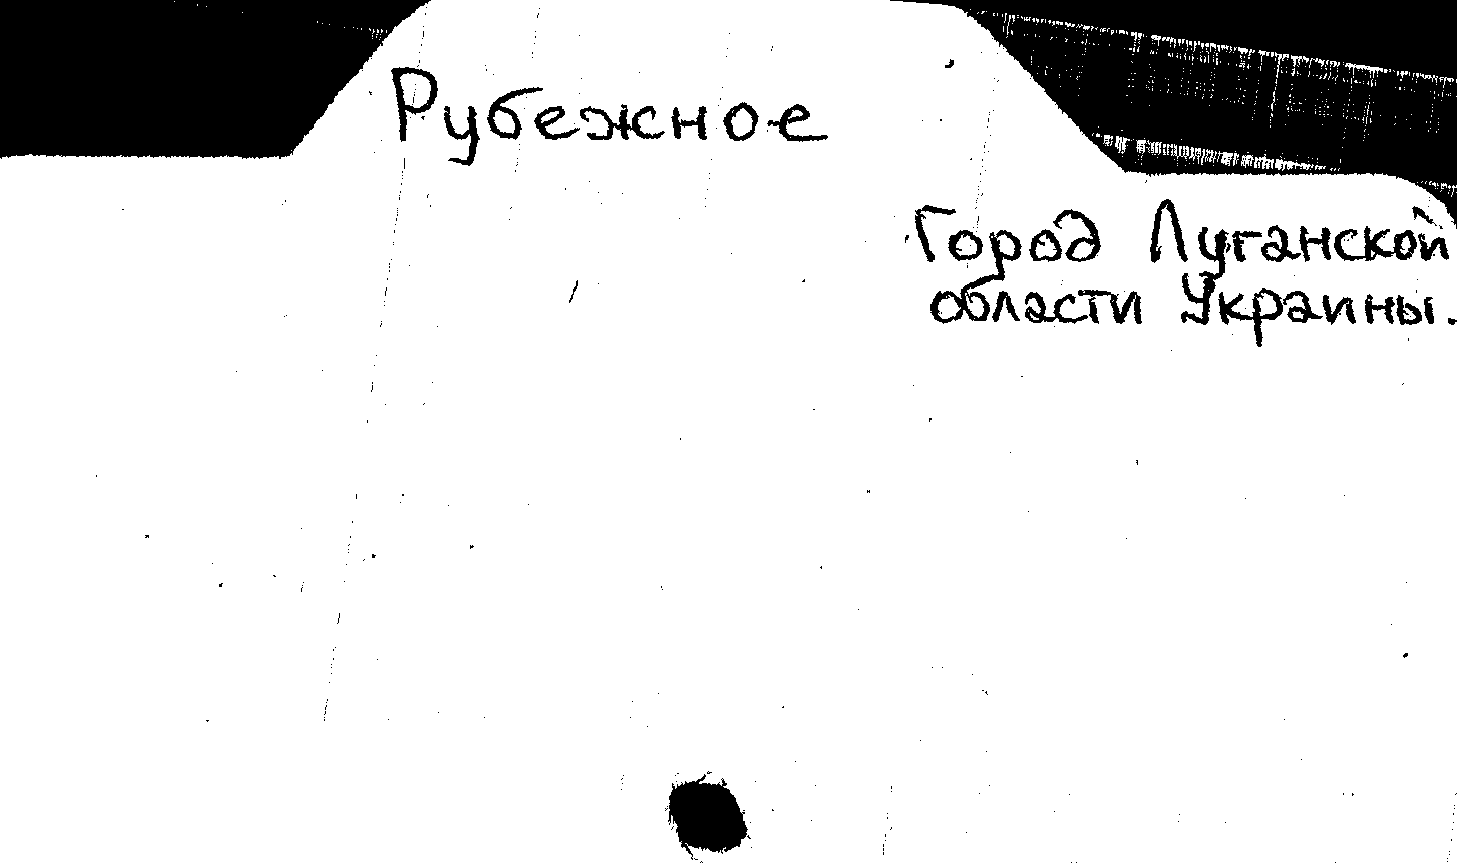 Рубежное
Город Луганской
области Украины.